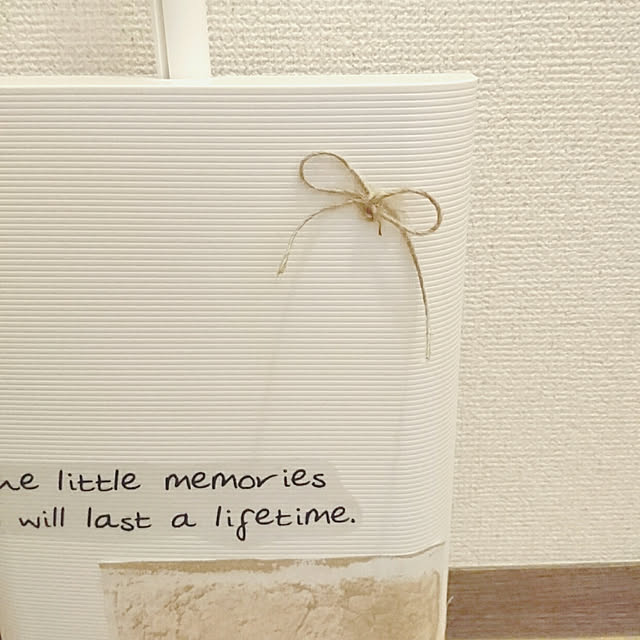 little memories
will last a lifetime.